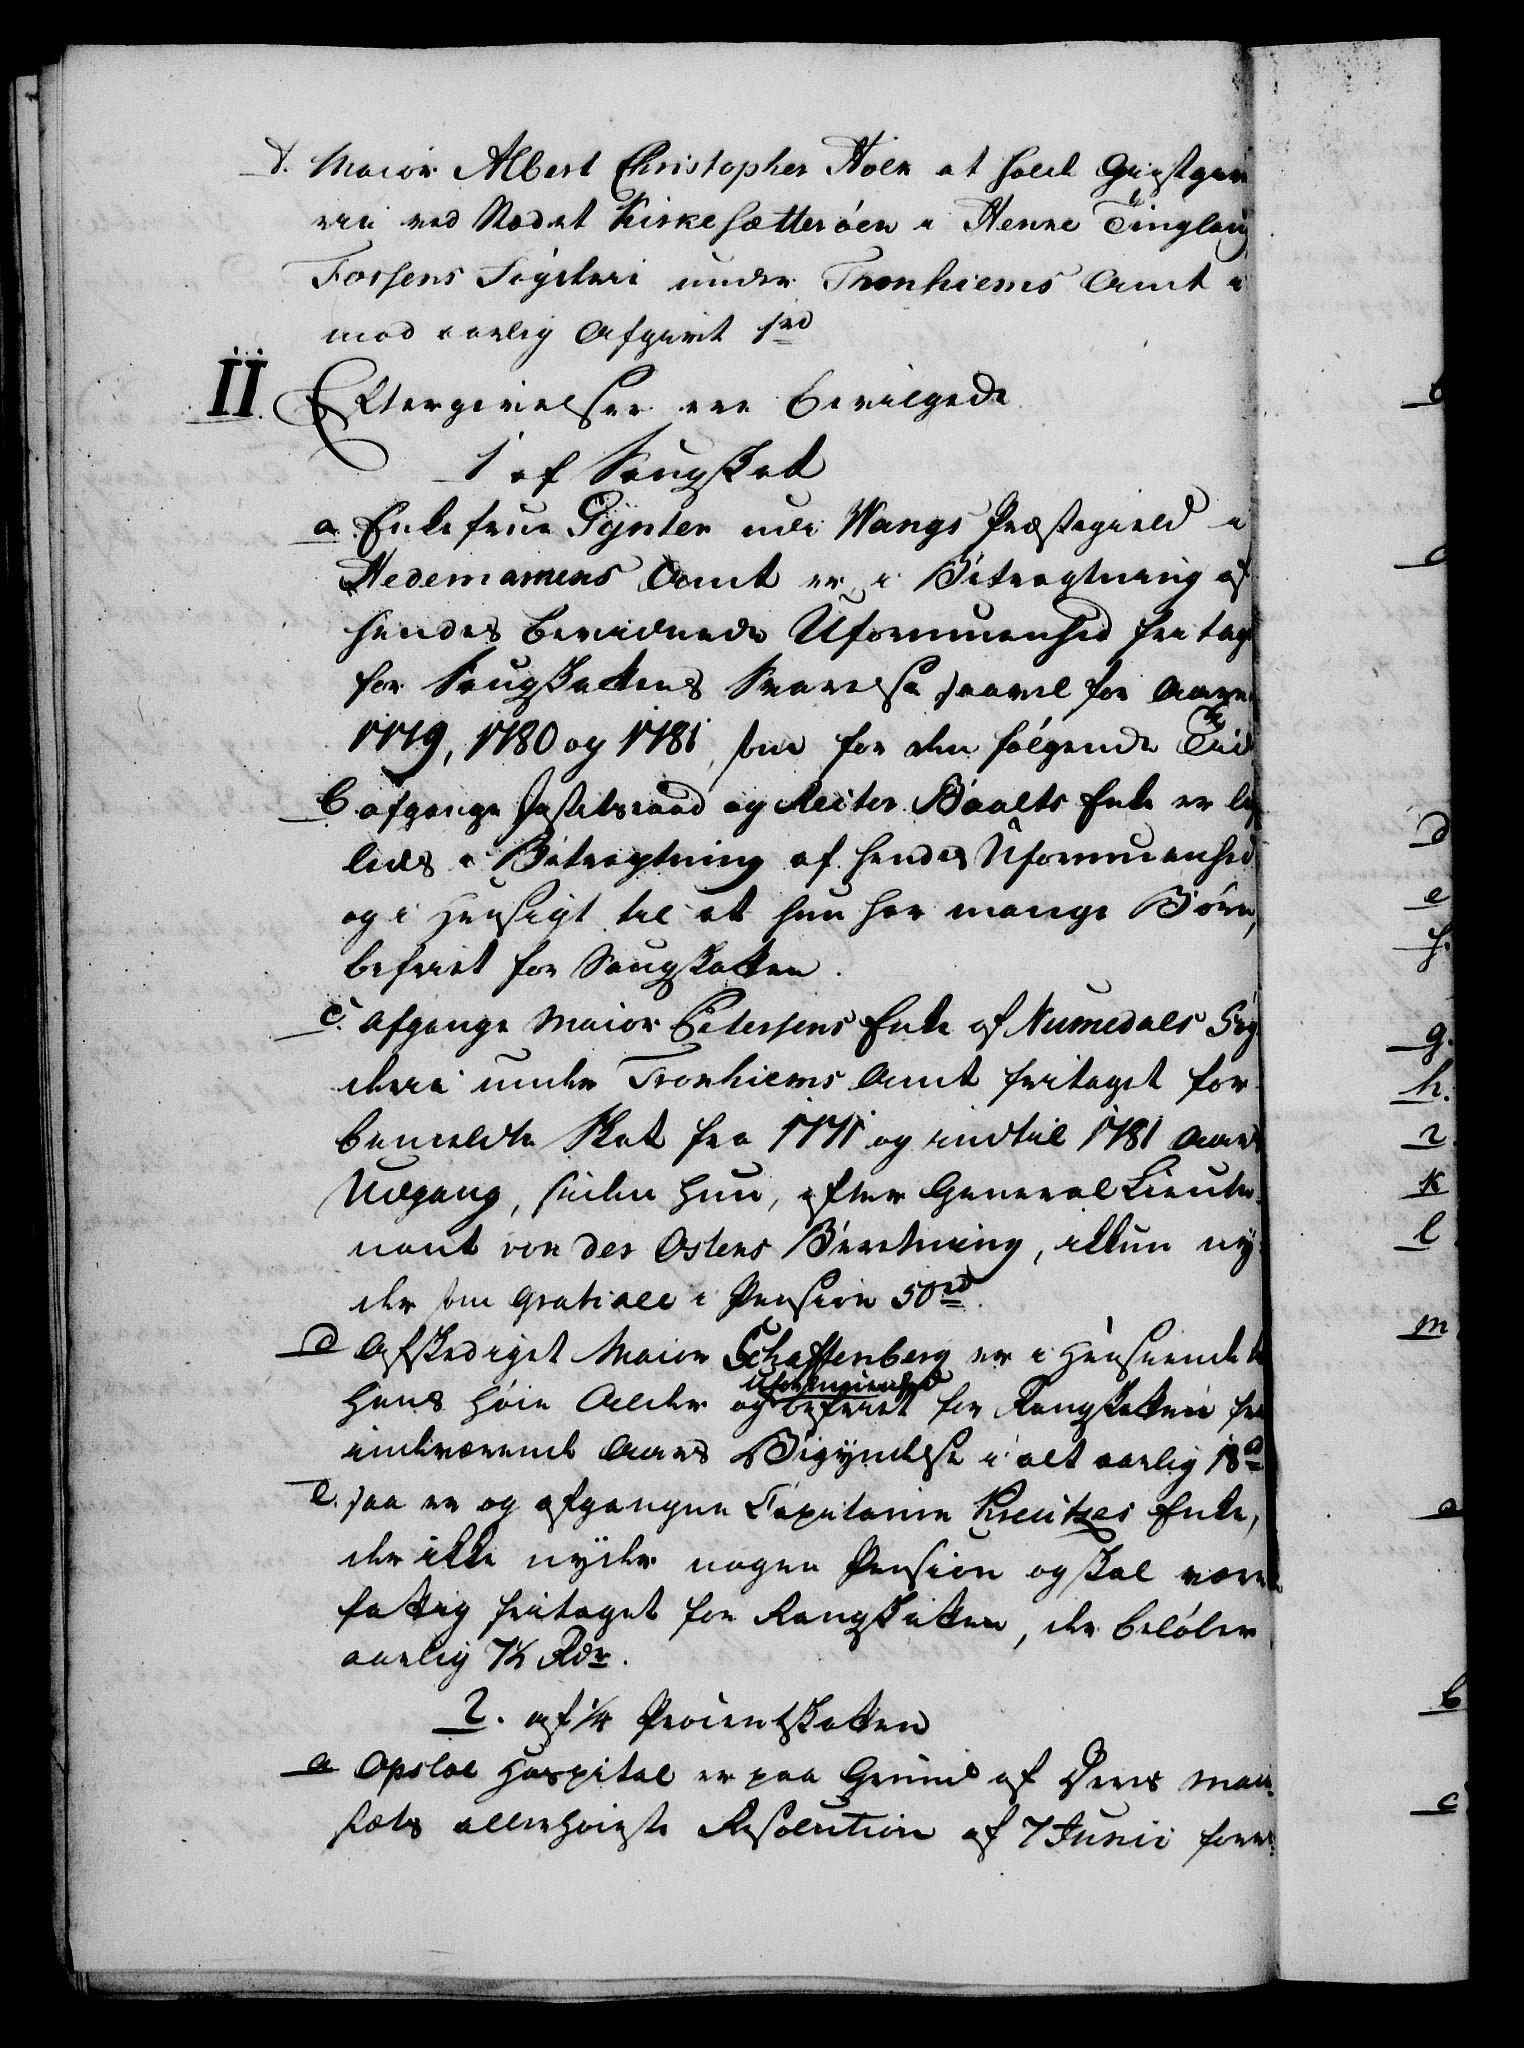 d. Maior Albert Christopher Holk at hold Giæstgive
rie ved Stædet Kirkesætterøen i Henne Tinglaug
Fossens Fogderi under Tronhiems Amt i
mod aarlig Afgivt 1 rd
II. Eftergivelser ere bevilgede
1 af Rangskat
a Enkefrue Gynter udi Wangs Præstegield i
Hedemarkens Amt er i Betragtning af
hendes beviidnede Uformuenhed fritag
for Rangskattens Svarelse saavel for Aare
1779, 1780 og 1781, som for den følgende Tiid
b afgangne Justitsraad og Rector Baalts Enke er lige
ledes i Betragtning af hendes Uformuenhed
og i Hensigt til at hun har mange Børn,
befriet for Rangskatten.
c. Afgangne Maior Petersens Enke af Numedals Fog
derie under Tronhiems Amt fritaget for
bemeldte Skat fra 1771 og indtil 1781 Aars
Udgang, siden hun, efter General Lieute
nant von der Ostens Beretning, ikkun ny
der som Gratiale i Pension 50 rd.
d Afskediget Maior Schaftenberg er i Henseende til
hans høie Alder og Uformuenhed befriet for Rangskatten fra
indeværende Aars Begyndelse i alt aarlig 18 rd
e. saa er og afgangne Capitaine Kreutzes Enke,
der ikke nyder nogen Pension og skal være
fattig fritaget for Rangskatten, der beløber
aarlig 7½ Rdr.
2. af ¼ Procentskatten
a Opsloe Hospital er paa Grund af Deres Maie
stæts allerhøieste Resolution af 7 Junii forr
b
c
d
e
f.
g.
h.
i
k
l
m
a
b
c